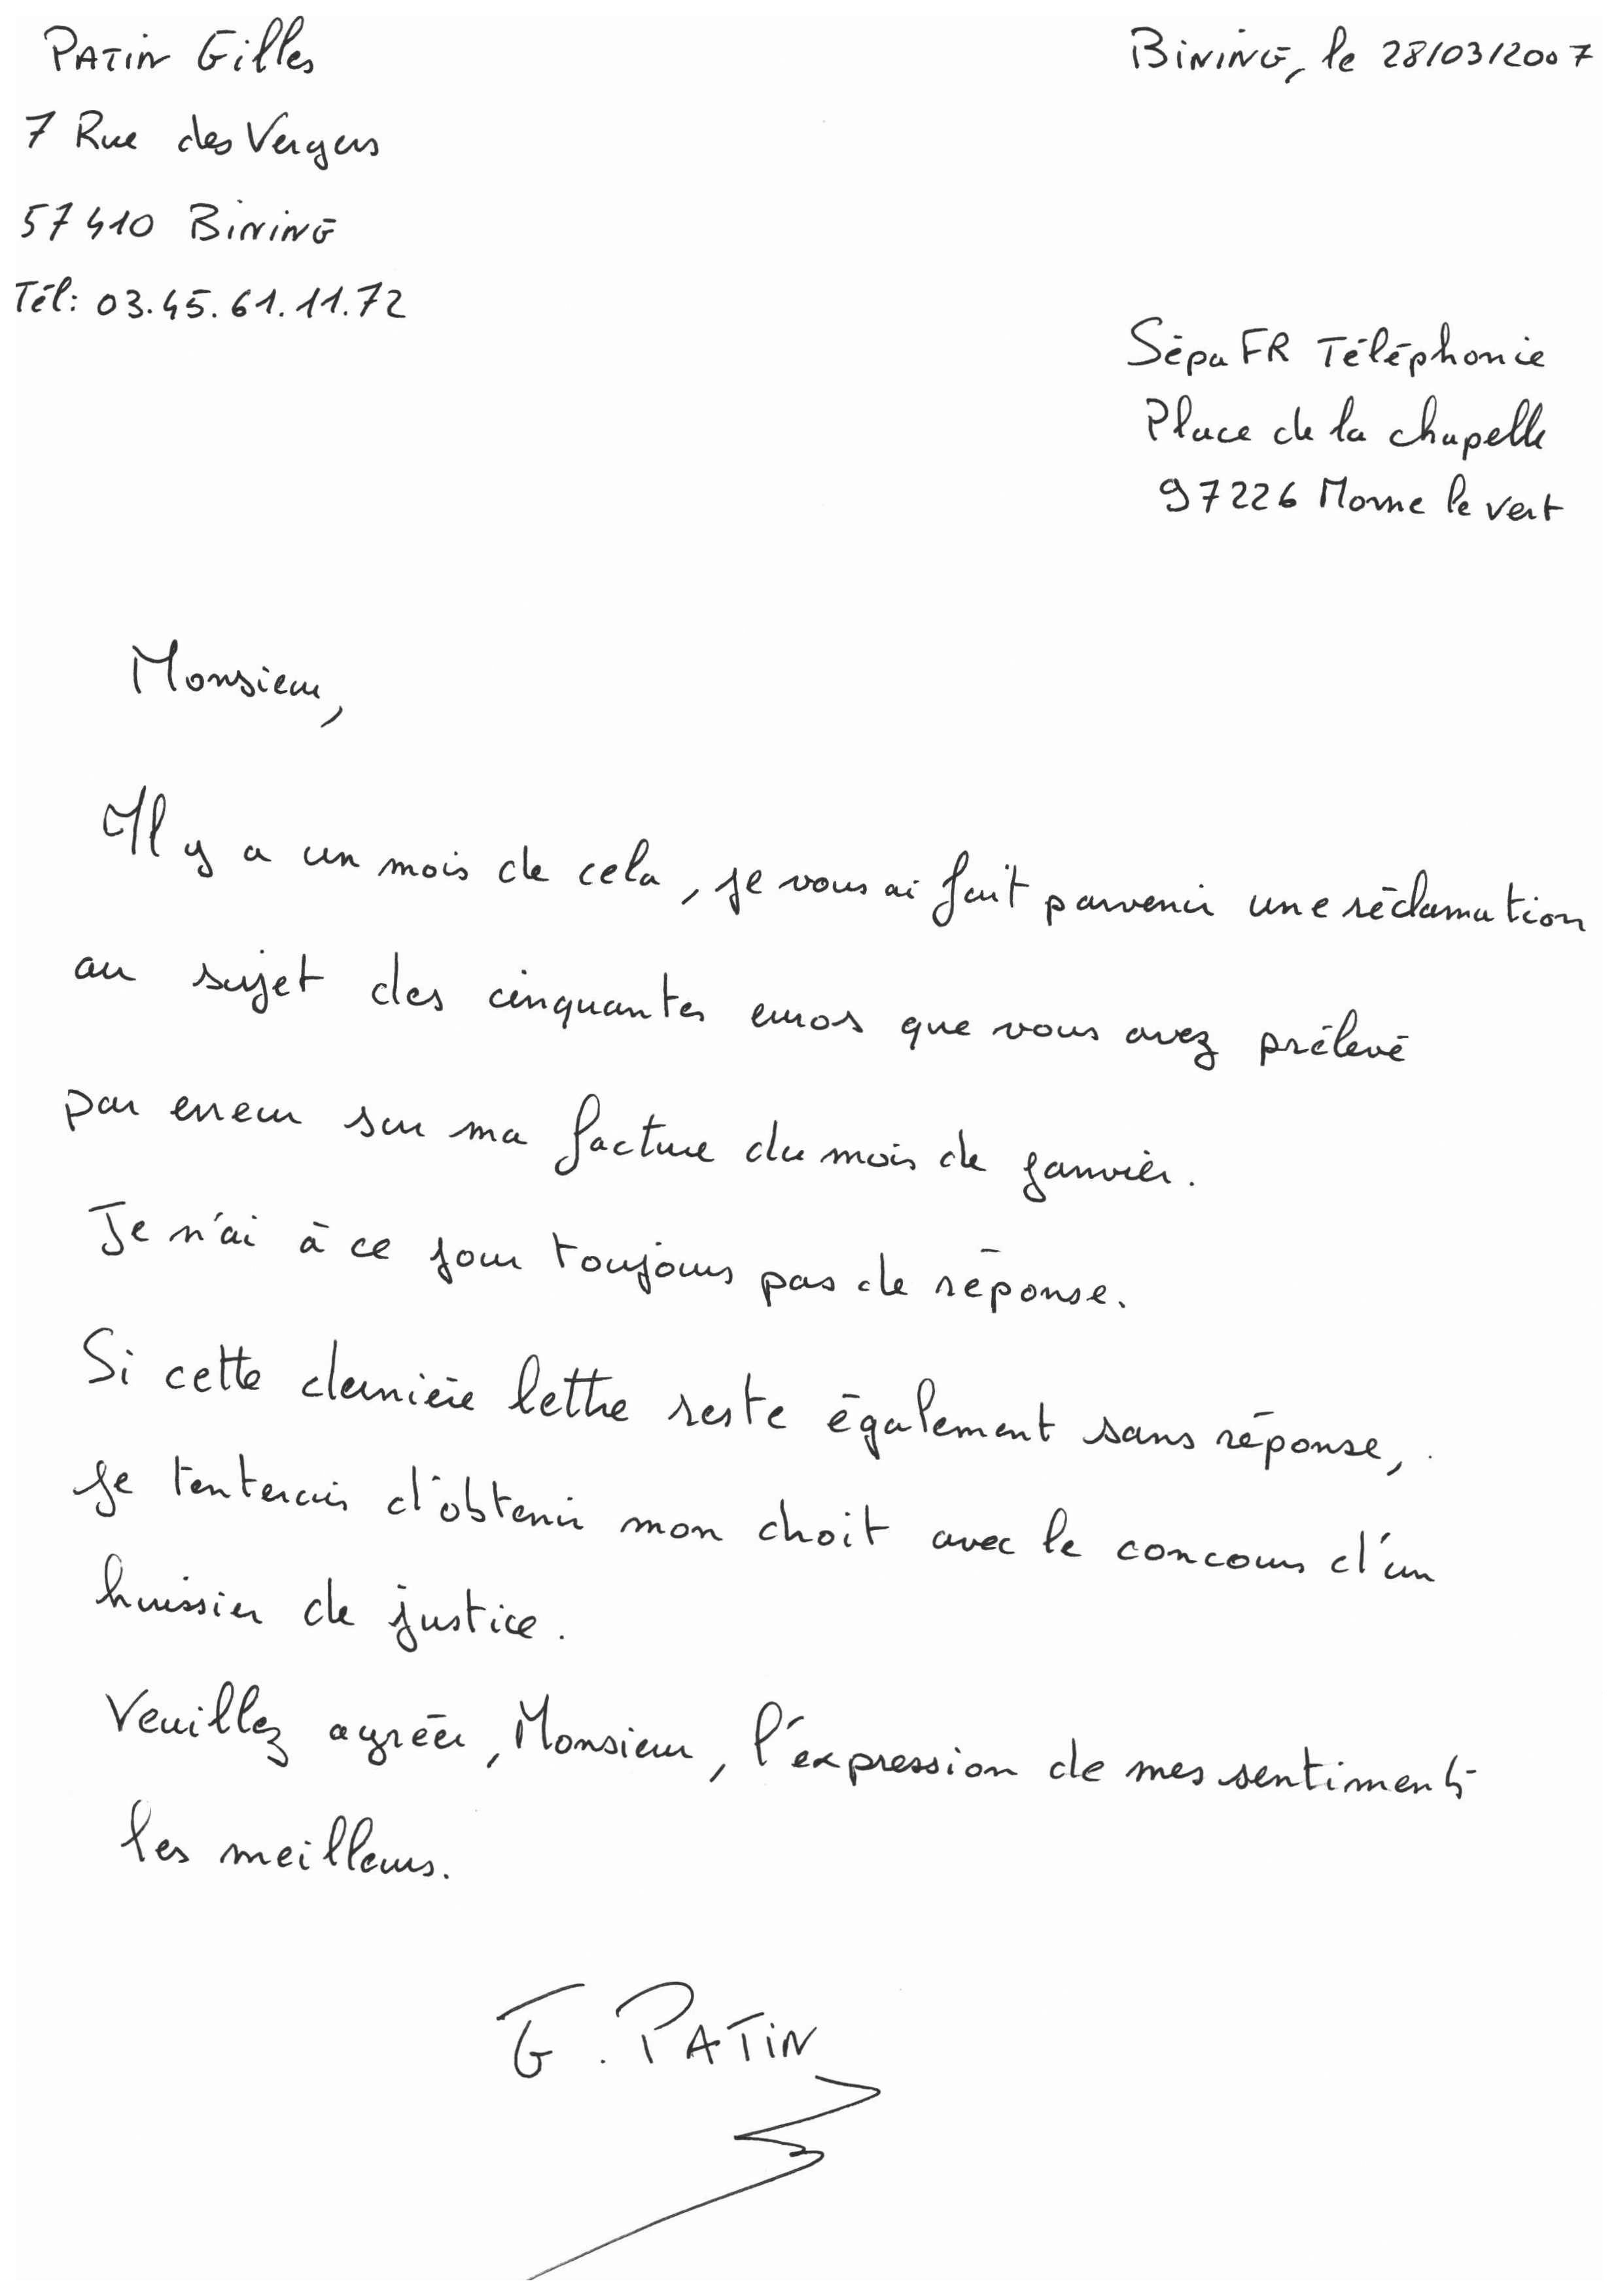 PATIN Gilles
BINING, le 28/03/2007
7 Rue des Vergers
57410 BINING
Tél: 03.45.61.11.72
Sépa FR Téléphonie
Place de la chapelle
97226 Morne le vert
Monsieur,
Il y a un mois de cela, je vous ai fait parvenir une réclamation
au sujet des cinquantes euros que vous avez prélevé
par erreur sur ma facture du mois de janvier.
Je n'ai à ce jour toujours pas de réponse.
Si cette dernière lettre reste également sans réponse,
je tenterais d'obtenir mon droit avec le concours d'un
huissier de justice.
Veuillez agréer, Monsieur, l'expression de mes sentiments
les meilleurs.
G. PATIN